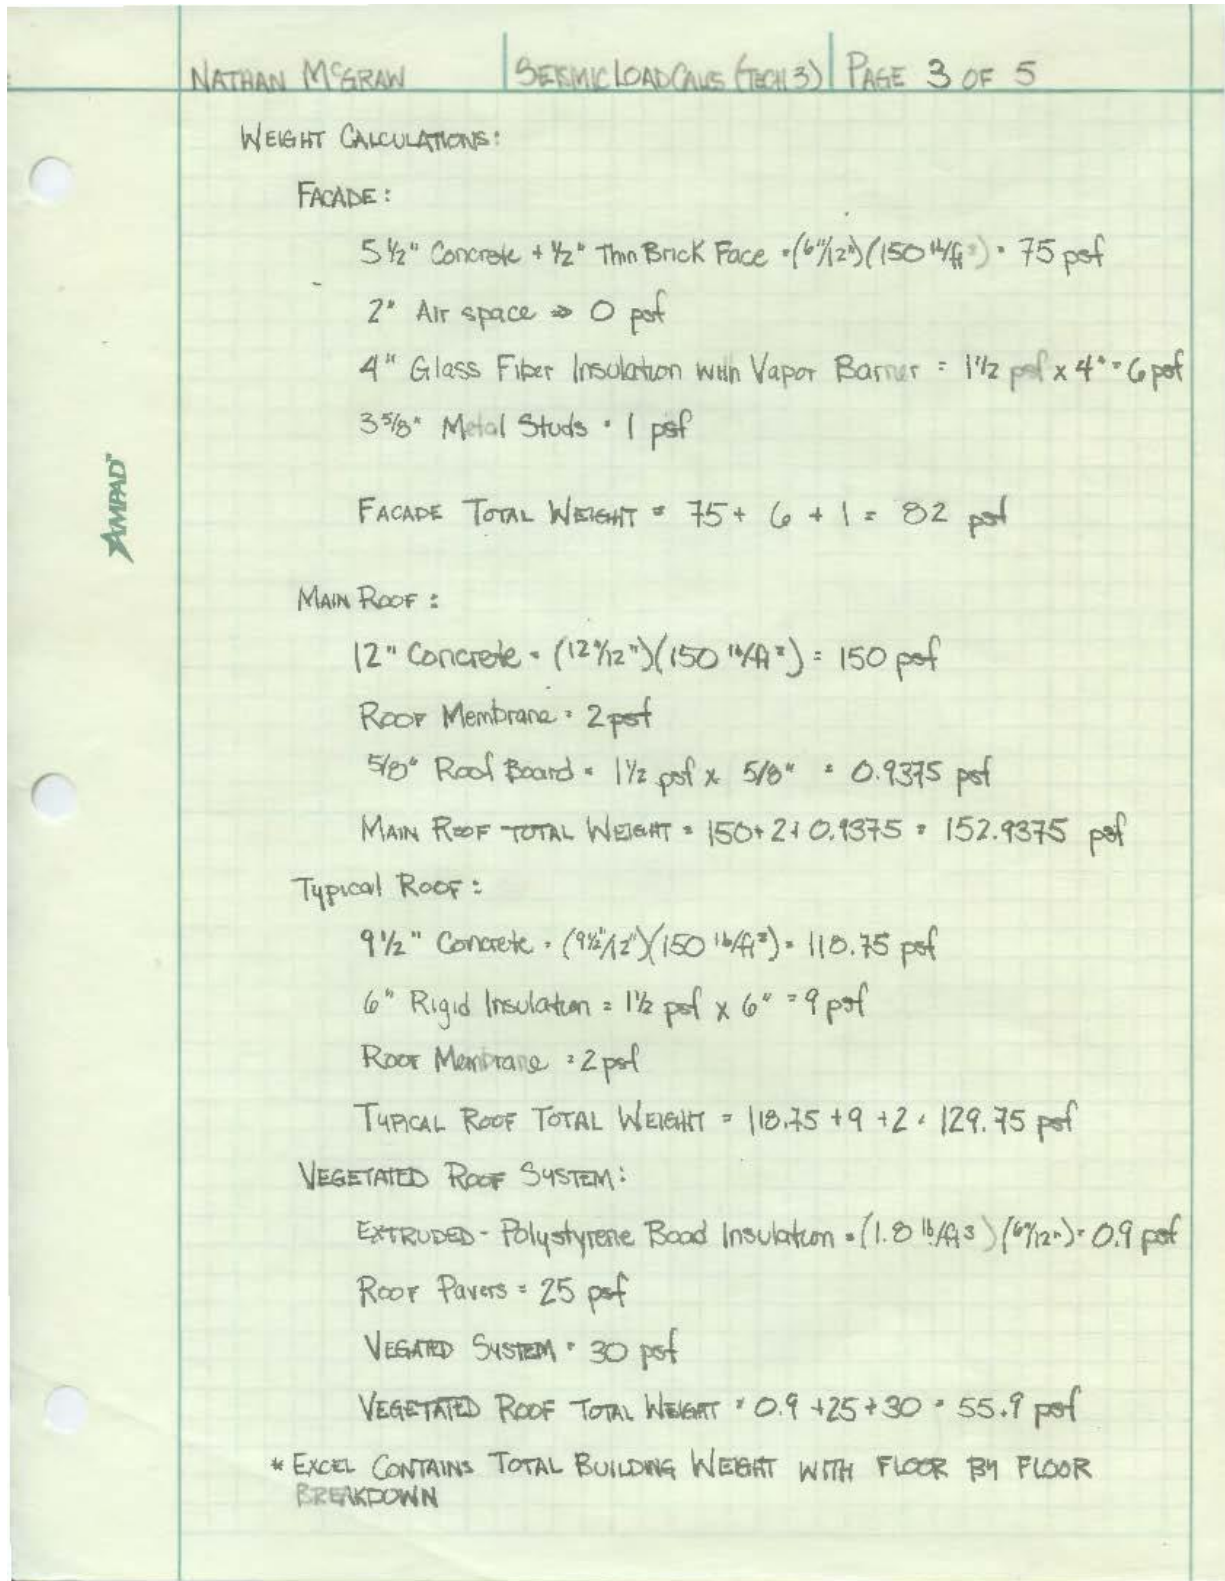 NATHAN McGRAW SEISMIC LOAD CALCS (TECH 3) PAGE 3 OF 5
WEIGHT CALCULATIONS:
FACADE:
5 1/2" Concrete + 1/2" Thin Brick Face = (6"/12")(150 lb/ft³) = 75 psf
2" Air space => 0 psf
4" Glass Fiber Insulation with Vapor Barrier = 1 1/2 psf x 4" = 6 psf
3 5/8" Metal Studs = 1 psf
FACADE TOTAL WEIGHT = 75 + 6 + 1 = 82 psf
AMPAD™
MAIN ROOF:
12" Concrete = (12"/12")(150 lb/ft³) = 150 psf
ROOF Membrane = 2 psf
5/8" Roof Board = 1 1/2 psf x 5/8" = 0.9375 psf
MAIN ROOF TOTAL WEIGHT = 150 + 2 + 0.9375 = 152.9375 psf
Typical ROOF:
9 1/2" Concrete = (9 1/2"/12")(150 lb/ft³) = 118.75 psf
6" Rigid Insulation = 1 1/2 psf x 6" = 9 psf
ROOF Membrane = 2 psf
TYPICAL ROOF TOTAL WEIGHT = 118.75 + 9 + 2 = 129.75 psf
VEGETATED ROOF SYSTEM:
EXTRUDED - Polystyrene Boad Insulation = (1.8 lb/ft3)(6"/12") = 0.9 psf
ROOF Pavers = 25 psf
VEGATED SYSTEM = 30 psf
VEGETATED ROOF TOTAL WEIGHT = 0.9 + 25 + 30 = 55.9 psf
* EXCEL CONTAINS TOTAL BUILDING WEIGHT WITH FLOOR BY FLOOR
BREAKDOWN